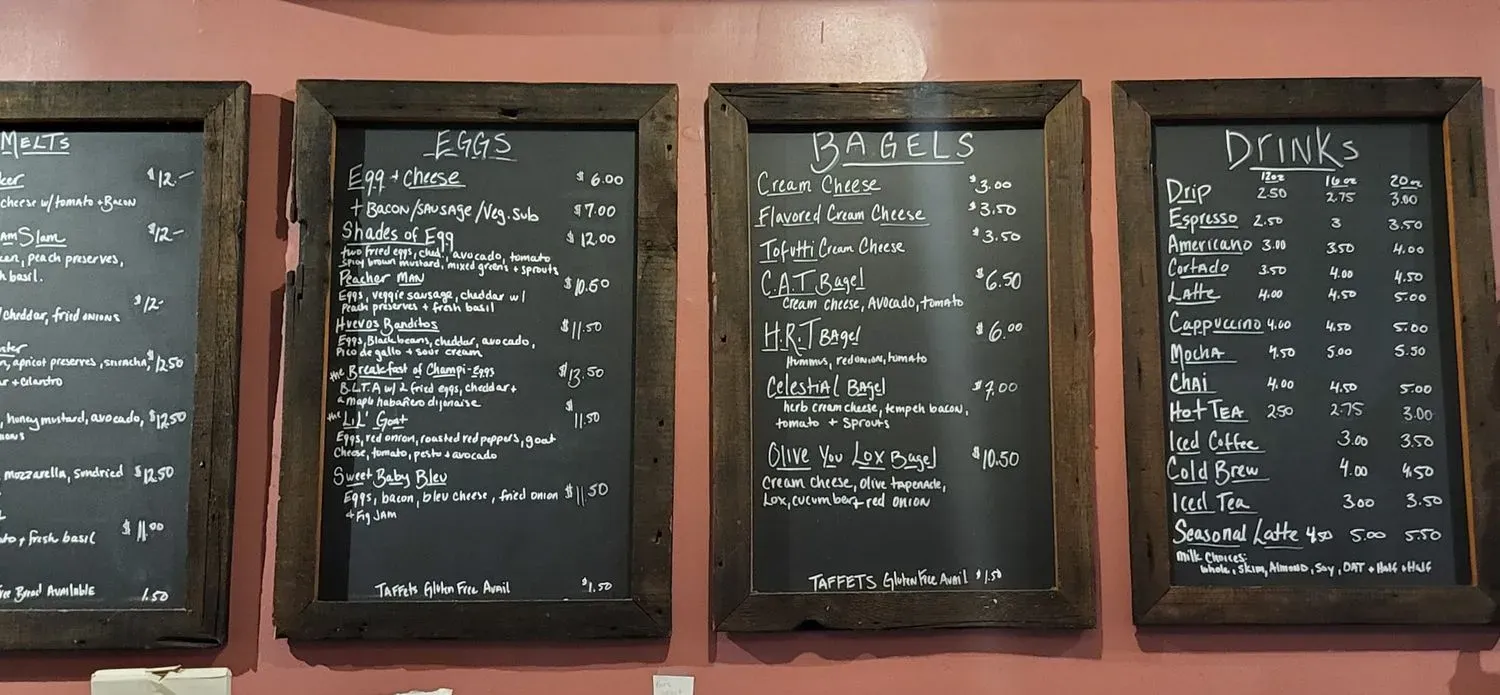 MELTS
$12.-
cheese w/tomato + BACON
Slam $12-
peach preserves,
basil.
$12-
cheddar, fried onions
apricot preserves, sriracha, $12.50
+ cilantro
, honey mustard, avocado, $12.50
mozzarella, sundried $12.50
$11.00
+ fresh basil
Bread Available 1.50
EGGS
Egg + cheese $6.00
+ BACON/SAUSAGE/Veg. Sub $7.00
Shades of Egg $12.00
two fried eggs, ched., avocado, tomato
spicy brown mustard, mixed greens + sprouts
Peacher MAN $10.50
Eggs, veggie sausage, cheddar w/
Peach preserves + fresh basil
Huevos Banditos $11.50
Eggs, Black beans, cheddar, avocado,
Pico de gallo + sour cream
the Breakfast of Champi-Eggs $13.50
B.L.T.A w/ 2 fried eggs, cheddar +
a maple habañero dijonaise
the LIL' Goat $11.50
Eggs, red onion, roasted red peppers, goat
Cheese, tomato, pesto + avocado
Sweet Baby Bleu
Eggs, bacon, bleu cheese, fried onion $11.50
+ Fig JAM
TAFFETS Gluten Free Avail $1.50
BAGELS
Cream Cheese $3.00
Flavored Cream Cheese $3.50
Tofutti Cream Cheese $3.50
C.A.T Bagel $6.50
Cream cheese, AVOCADO, tomato
H.R.T Bagel $6.00
Hummus, red onion, tomato
Celestial Bagel $7.00
herb cream cheese, tempeh bacon,
tomato + Sprouts
Olive You Lox Bagel $10.50
Cream cheese, Olive tapenade,
Lox, cucumber + red onion
TAFFETS Gluten Free Avail $1.50
DRINKS
12oz 16oz 20oz
Drip 2.50 2.75 3.00
Espresso 2.50 3 3.50
Americano 3.00 3.50 4.00
Cortado 3.50 4.00 4.50
Latte 4.00 4.50 5.00
Cappuccino 4.00 4.50 5.00
Mocha 4.50 5.00 5.50
Chai 4.00 4.50 5.00
Hot TEA 2.50 2.75 3.00
Iced Coffee 3.00 3.50
Cold Brew 4.00 4.50
Iced Tea 3.00 3.50
Seasonal Latte 4.50 5.00 5.50
Milk Choices:
Whole, Skim, Almond, Soy, OAT + Half + Half